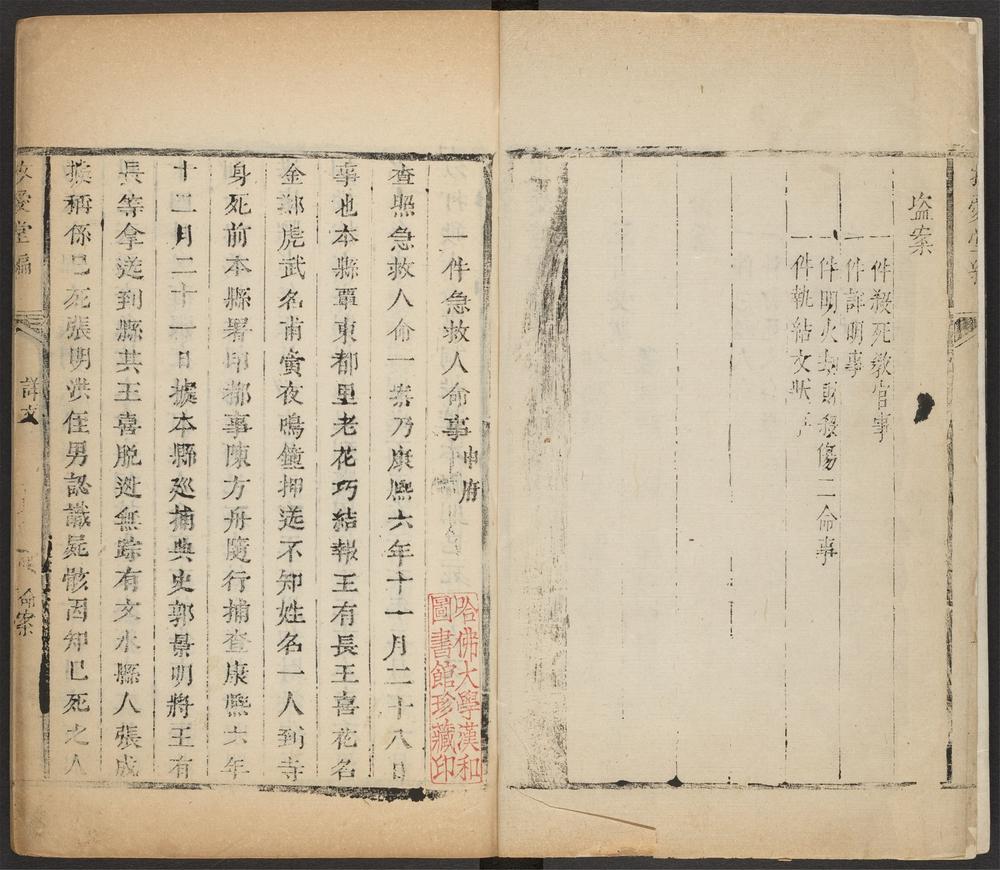 盜案
一件殺死教官事
一件詳明事
一件明火刼財殺傷二命事
一件執結文狀事
一件急救人命事 申府
查照急救人命一案乃康熙六年十一月二十八日
事也本縣覃東都里老花巧結報王有長王喜花名
金郝虎武名甫夤夜鳴鐘押送不知姓名一人到寺
身死前本縣署印都事陳方舟隨行捕查康熙六年
十二月二十一日據本縣廵捕典史郭景明將王有
長等拿送到縣其王喜脫逃無踪有文水縣人張成
據稱係已死張明洪侄男認識屍骸因知已死之人
愛堂編
詳文
命案
哈佛大學漢和
圖書館珍藏印